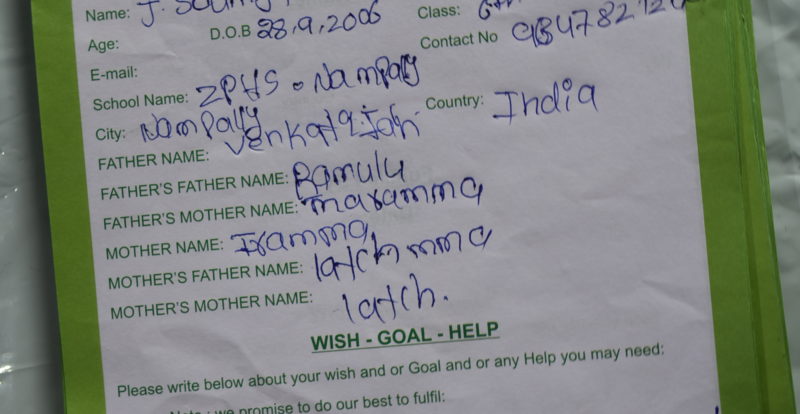 Name: J.
Age: D.O.B 28.9.2006 Class:
E-mail: Contact No
School Name: ZPHS. Nampally
City: Nampally Country: India
FATHER NAME:
FATHER'S FATHER NAME: Ramulu
FATHER'S MOTHER NAME: maramma
MOTHER NAME: Iramma
MOTHER'S FATHER NAME: latchmma
MOTHER'S MOTHER NAME: latch.
WISH - GOAL - HELP
Please write below about your wish and or Goal and or any Help you may need:
we promise to do our best to fulfil: